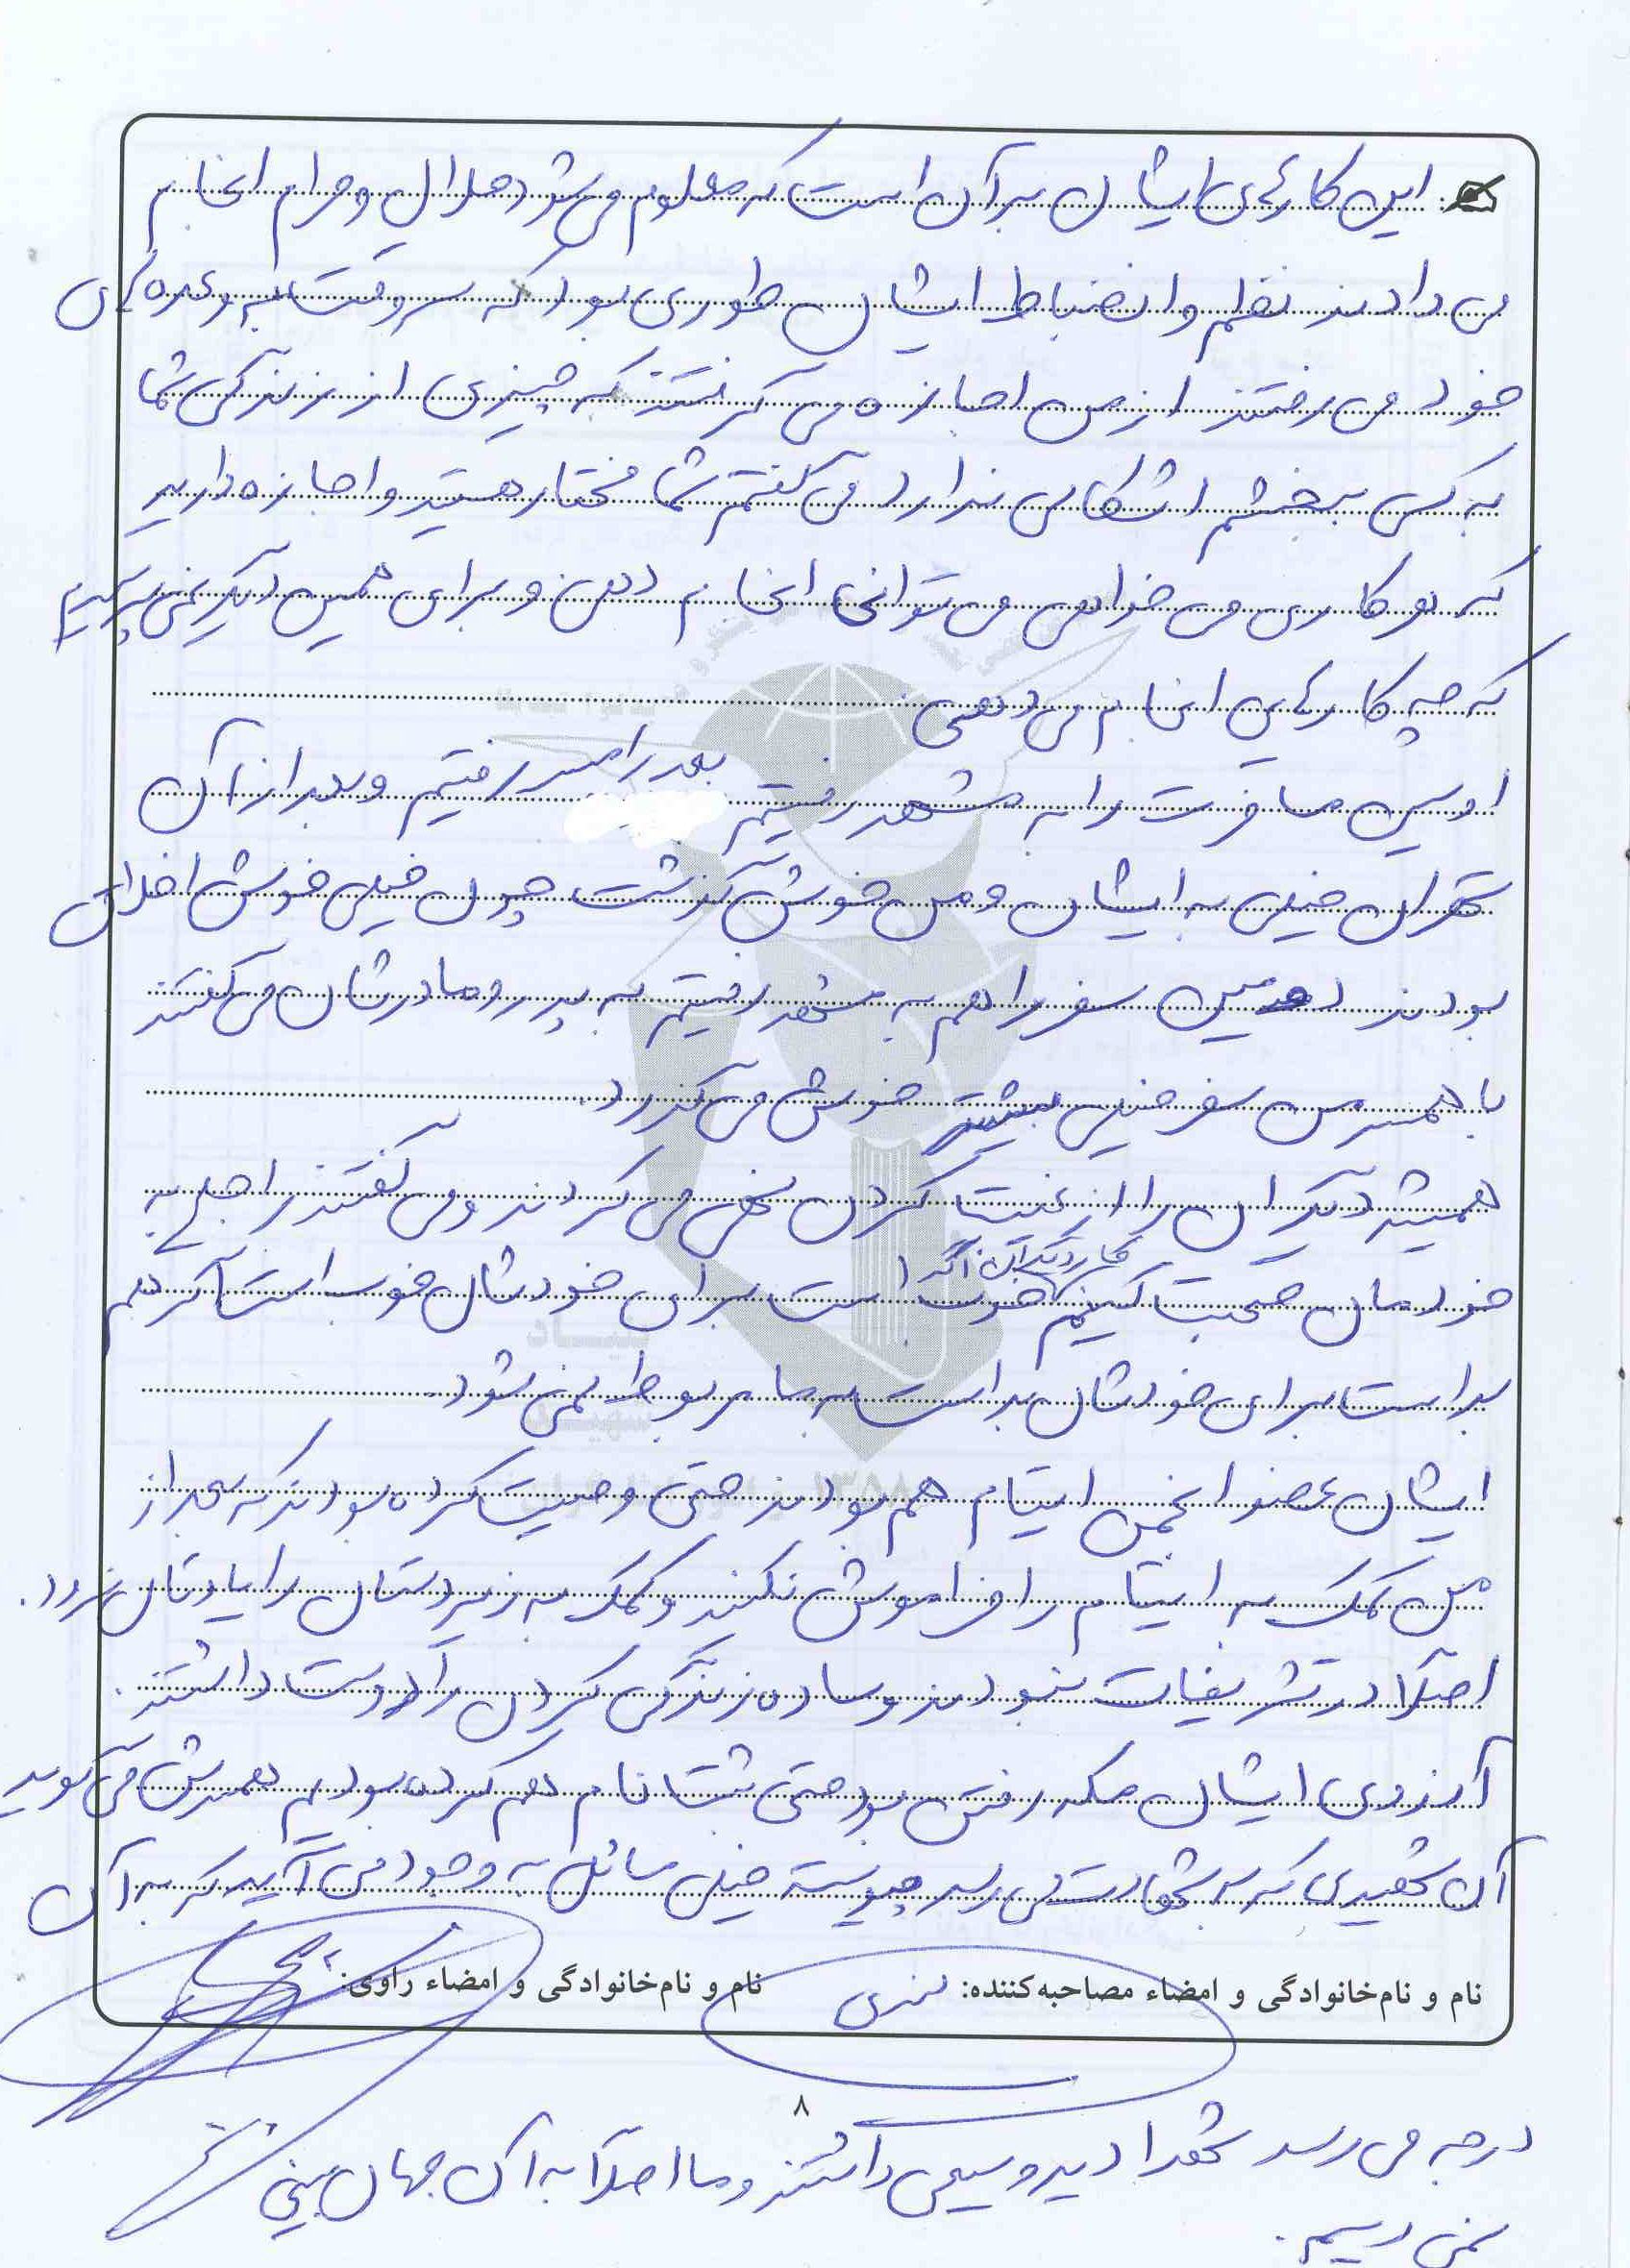 این کارهای ایشان بر آن است که معلوم می‌شود حلال و حرام انجام
می دادند نظم و انضباط ایشان طوری بود که سروقت به وعده‌های
خود می رفتند از من اجازه می گرفتند که چیزی از زندگی شما
به کسی ببخشم اشکالی ندارد می گفتم شما مختار هستید و اجازه دارید
که هر کاری می خواهی می توانی انجام دهی و برای همین دیگر نمی پرسیدم
که چه کارهایی انجام می دهی.
اولین مسافرت را به مشهد رفتیم بعد رامسر رفتیم و بعد از آن
تهران خیلی به ایشان و من خوش گذشت چون خیلی خوش اخلاق
بودند دومین سفر را هم به مشهد رفتیم به پدر و مادرشان می گفتند
با همسرم سفر خیلی بیشتر خوش می گذرد.
همیشه دیگران را از غیبت کردن نهی می کردند و می گفتند راجع به
خودمان صحبت کنیم کار دیگران اگر خوب است برای خودشان خوب است اگر هم
بد است برای خودشان بد است به ما مربوط نمی شود.
ایشان عضو انجمن ایتام هم بودند حتی وصیت کرده بودند که بعد از
من کمک به ایتام را فراموش نکنند و کمک به زیردستان را یادتان نرود.
اصلا در تشریفات نبودند و ساده زندگی کردن را دوست داشتند.
آرزوی ایشان مکه رفتن بود حتی ثبت نام هم کرده بودیم همسرش می گوید
آن شهیدی که به شهادت می رسد پیوسته خیلی مسائل به وجود می آید که به آن
نام و نام‌خانوادگی و امضاء مصاحبه‌کننده: نام و نام‌خانوادگی و امضاء راوی:
۸
درجه می رسد شهدا دید وسیعی داشتند و ما اصلا به آن جهان بینی
نمی رسیم.